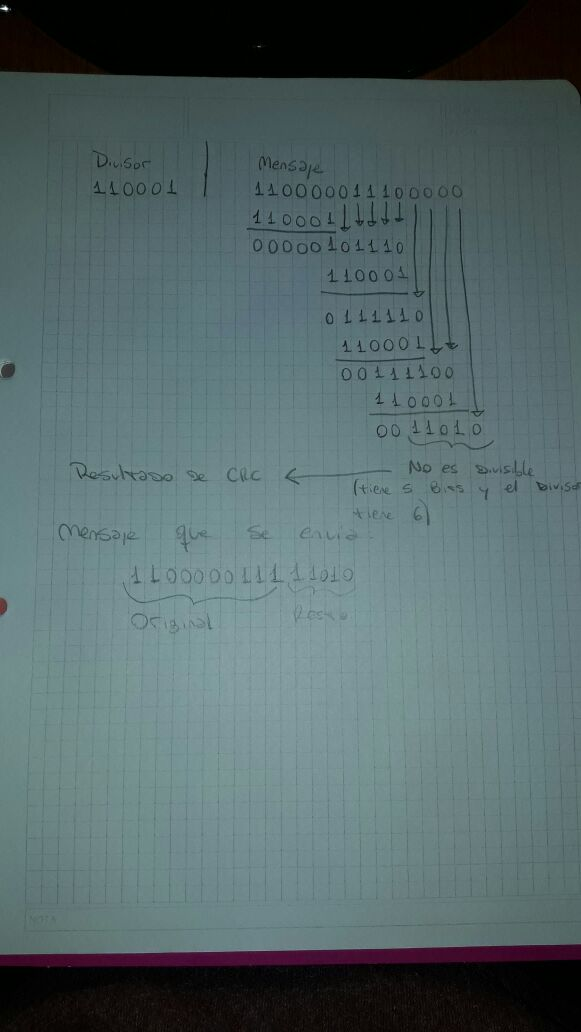 Divisor Mensaje
110001 110000011100000
110001
00000101110
110001
0111110
110001
00111100
110001
0011010
Resultado de CRC ← No es divisible
(tiene 5 Bits y el Divisor
tiene 6)
Mensaje que se envia:
1100000111 11010
Original Resto
NOTA